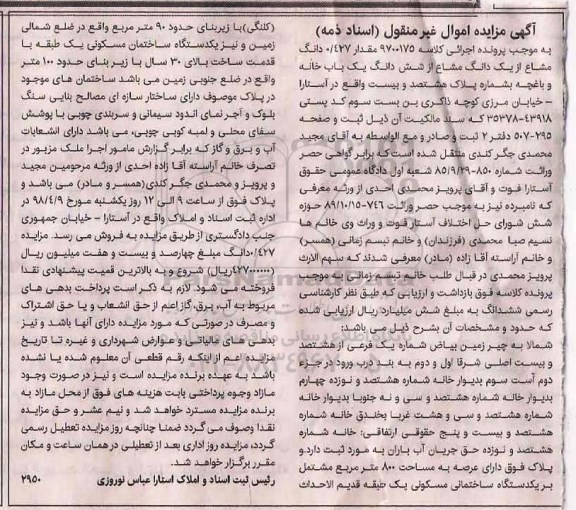 آگهی مزایده اموال غیر منقول (اسناد ذمه)
به موجب پرونده اجرائی کلاسه ۹۷۰۰۱۷۵ مقدار ۰/۴۲۷ دانگ
مشاع از یک دانگ مشاع از شش دانگ یک باب خانه
و باغچه بشماره پلاک هشتصد و بیست واقع در آستارا
- خیابان مرزی کوچه ذاکری بن بست سوم کد پستی
۴۳۹۱۸-۳۵۳۷۸ که سند مالکیت آن ذیل ثبت و صفحه
۲۹۵-۵۰۷ دفتر ۲ ثبت و صادر و مع الواسطه به آقای مجید
محمدی جگر کندی منتقل شده است که برابر گواهی حصر
وراثت شماره ۸۵۰-۸۵/۹/۲۹ شعبه اول دادگاه عمومی حقوق
آستارا فوت و آقای پرویز محمدی احدی از ورثه معرفی
که نامبرده نیز به موجب حصر وراثت ۷۴۶-۸۹/۱۰/۱۵ حوزه
شش شورای حل اختلاف آستار فوت و وراث وی خانم ها
نسیم صبا محمدی (فرزندان) و خانم تبسم زمانی (همسر)
و خانم آراسته آقا زاده (مادر) معرفی شدند که سهم الارث
پرویز محمدی در قبال طلب خانم تبسم زمانی به موجب
پرونده کلاسه فوق بازداشت و ارزیابی که طبق نظر کارشناسی
رسمی ششدانگ به مبلغ شش میلیارد ریال ارزیابی شده
که حدود و مشخصات آن بشرح ذیل می باشد:
شمالا به چیر زمین بیاض شماره یک فرعی از هشتصد
و بیست اصلی شرقا اول و دوم به بند درب ورود در جزء
دوم آست سوم بدیوار خانه شماره هشتصد و نوزده چهارم
بدیوار خانه شماره هشتصد و سی و نه جنوبا بدیوار خانه
شماره هشتصد و سی و هشت غربا بخندق خانه شماره
هشتصد و بیست و پنج حقوقی ارتفاقی: خانه شماره
هشتصد و نوزده حق جریان آب باران به مورد ثبت دارد.و
پلاک فوق دارای عرصه به مساحت ۸۰۰ متر مربع مشتمل
بر یکدستگاه ساختمانی مسکونی یک طبقه قدیم الاحداث
(کلنگی) با زیربنای حدود ۹۰ متر مربع واقع در ضلع شمالی
زمین و نیز یکدستگاه ساختمان مسکونی یک طبقه با
قدمت ساخت بالای ۳۰ سال با زیر بنای حدود ۱۰۰ متر
واقع در ضلع جنوبی زمین می باشد ساختمان های موجود
در پلاک موصوف دارای ساختار سازه ای مصالح بنایی سنگ
بلوک و آجر نمای اندود سیمانی و سربندی چوبی با پوشش
سفای محلی و لمبه کوبی چوبی، می باشد دارای انشعابات
آب و برق و گاز که برابر گزارش مامور اجرا ملک مزبور در
تصرف خانم آراسته آقا زاده احدی از ورثه مرحومین مجید
و پرویز و محمدی جگر کندی (همسر و مادر) می باشد و
پلاک فوق از ساعت ۹ الی ۱۲ روز یکشنبه مورخ ۹۸/۴/۹ در
اداره ثبت اسناد و املاک واقع در آستارا - خیابان جمهوری
جنب دادگستری از طریق مزایده به فروش می رسد. مزایده
۰/۴۲۷دانگ مبلغ چهارصد و بیست و هفت میلیون ریال
(۴۲۷۰۰۰۰۰۰ریال) شروع و به بالاترین قمیت پیشنهادی نقدا
فروخته می شود. لازم به ذکر است پرداخت بدهی های
مربوط به آب، برق، گاز اعم از حق انشعاب و یا حق اشتراک
و مصرف در صورتی که مورد مزایده دارای آنها باشد و نیز
بدهی های مالیاتی و عوارض شهرداری و غیره تا تاریخ
مزایده اعم از اینکه رقم قطعی آن معلوم شده یا نشده
باشد به عهده برنده مزایده است و نیز در صورت وجود
مازاد وجوه پرداختی بابت هزینه های فوق از محل مازاد به
برنده مزایده مسترد خواهد شد و نیم عشر و حق مزایده
نقدا وصول می گردد ضمنا چنانچه روز مزایده تعطیل رسمی
گردد، مزایده روز اداری بعد از تعطیلی در همان ساعت و مکان
مقرر برگزار خواهد شد.
رئیس ثبت اسناد و املاک استارا عباس نوروزی ۲۹۵۰